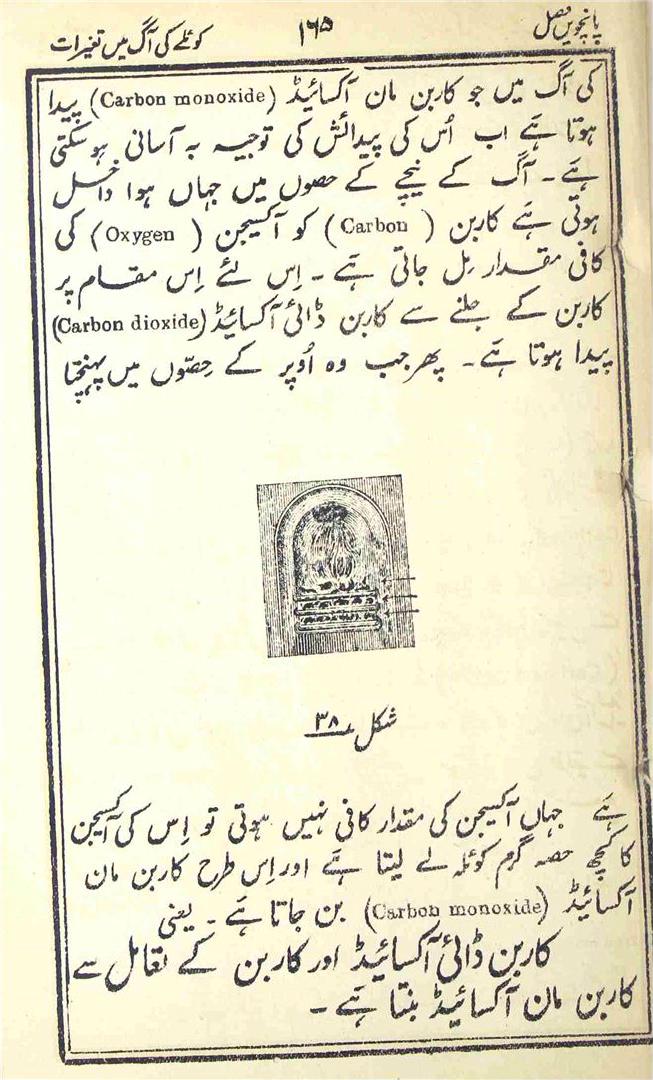 پانچویں فصل ۱۶۵ کوئلے کی آگ میں تغیرات
کی آگ میں جو کاربن مان آکسائیڈ (Carbon monoxide) پیدا
ہوتا ہے اب اُس کی پیدائش کی توجیہ بہ آسانی ہو سکتی
ہے۔ آگ کے نیچے کے حصوں میں جہاں ہوا داخل
ہوتی ہے کاربن (Carbon) کو آکسیجن (Oxygen) کی
کافی مقدار مِل جاتی ہے۔ اِس لئے اِس مقام پر
کاربن کے جلنے سے کاربن ڈائی آکسائیڈ (Carbon dioxide)
پیدا ہوتا ہے۔ پھر جب وہ اُوپر کے حِصّوں میں پہنچتا
شکل ۳۸
ہے جہاں آکسیجن کی مقدار کافی نہیں ہوتی تو اِس کی آکسیجن
کا کچھ حصہ گرم کوئلہ لے لیتا ہے اور اِس طرح کاربن مان
آکسائیڈ (Carbon monoxide) بن جاتا ہے۔ یعنی
کاربن ڈائی آکسائیڈ اور کاربن کے تعامل سے
کاربن مان آکسائیڈ بنتا ہے۔